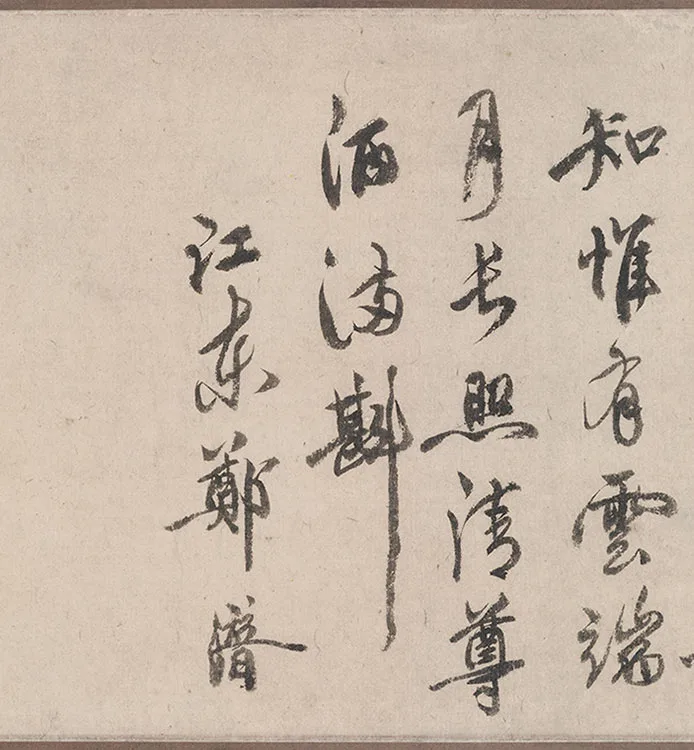 知惟有雲端
月長照清尊
酒滿斟
江東鄭濟